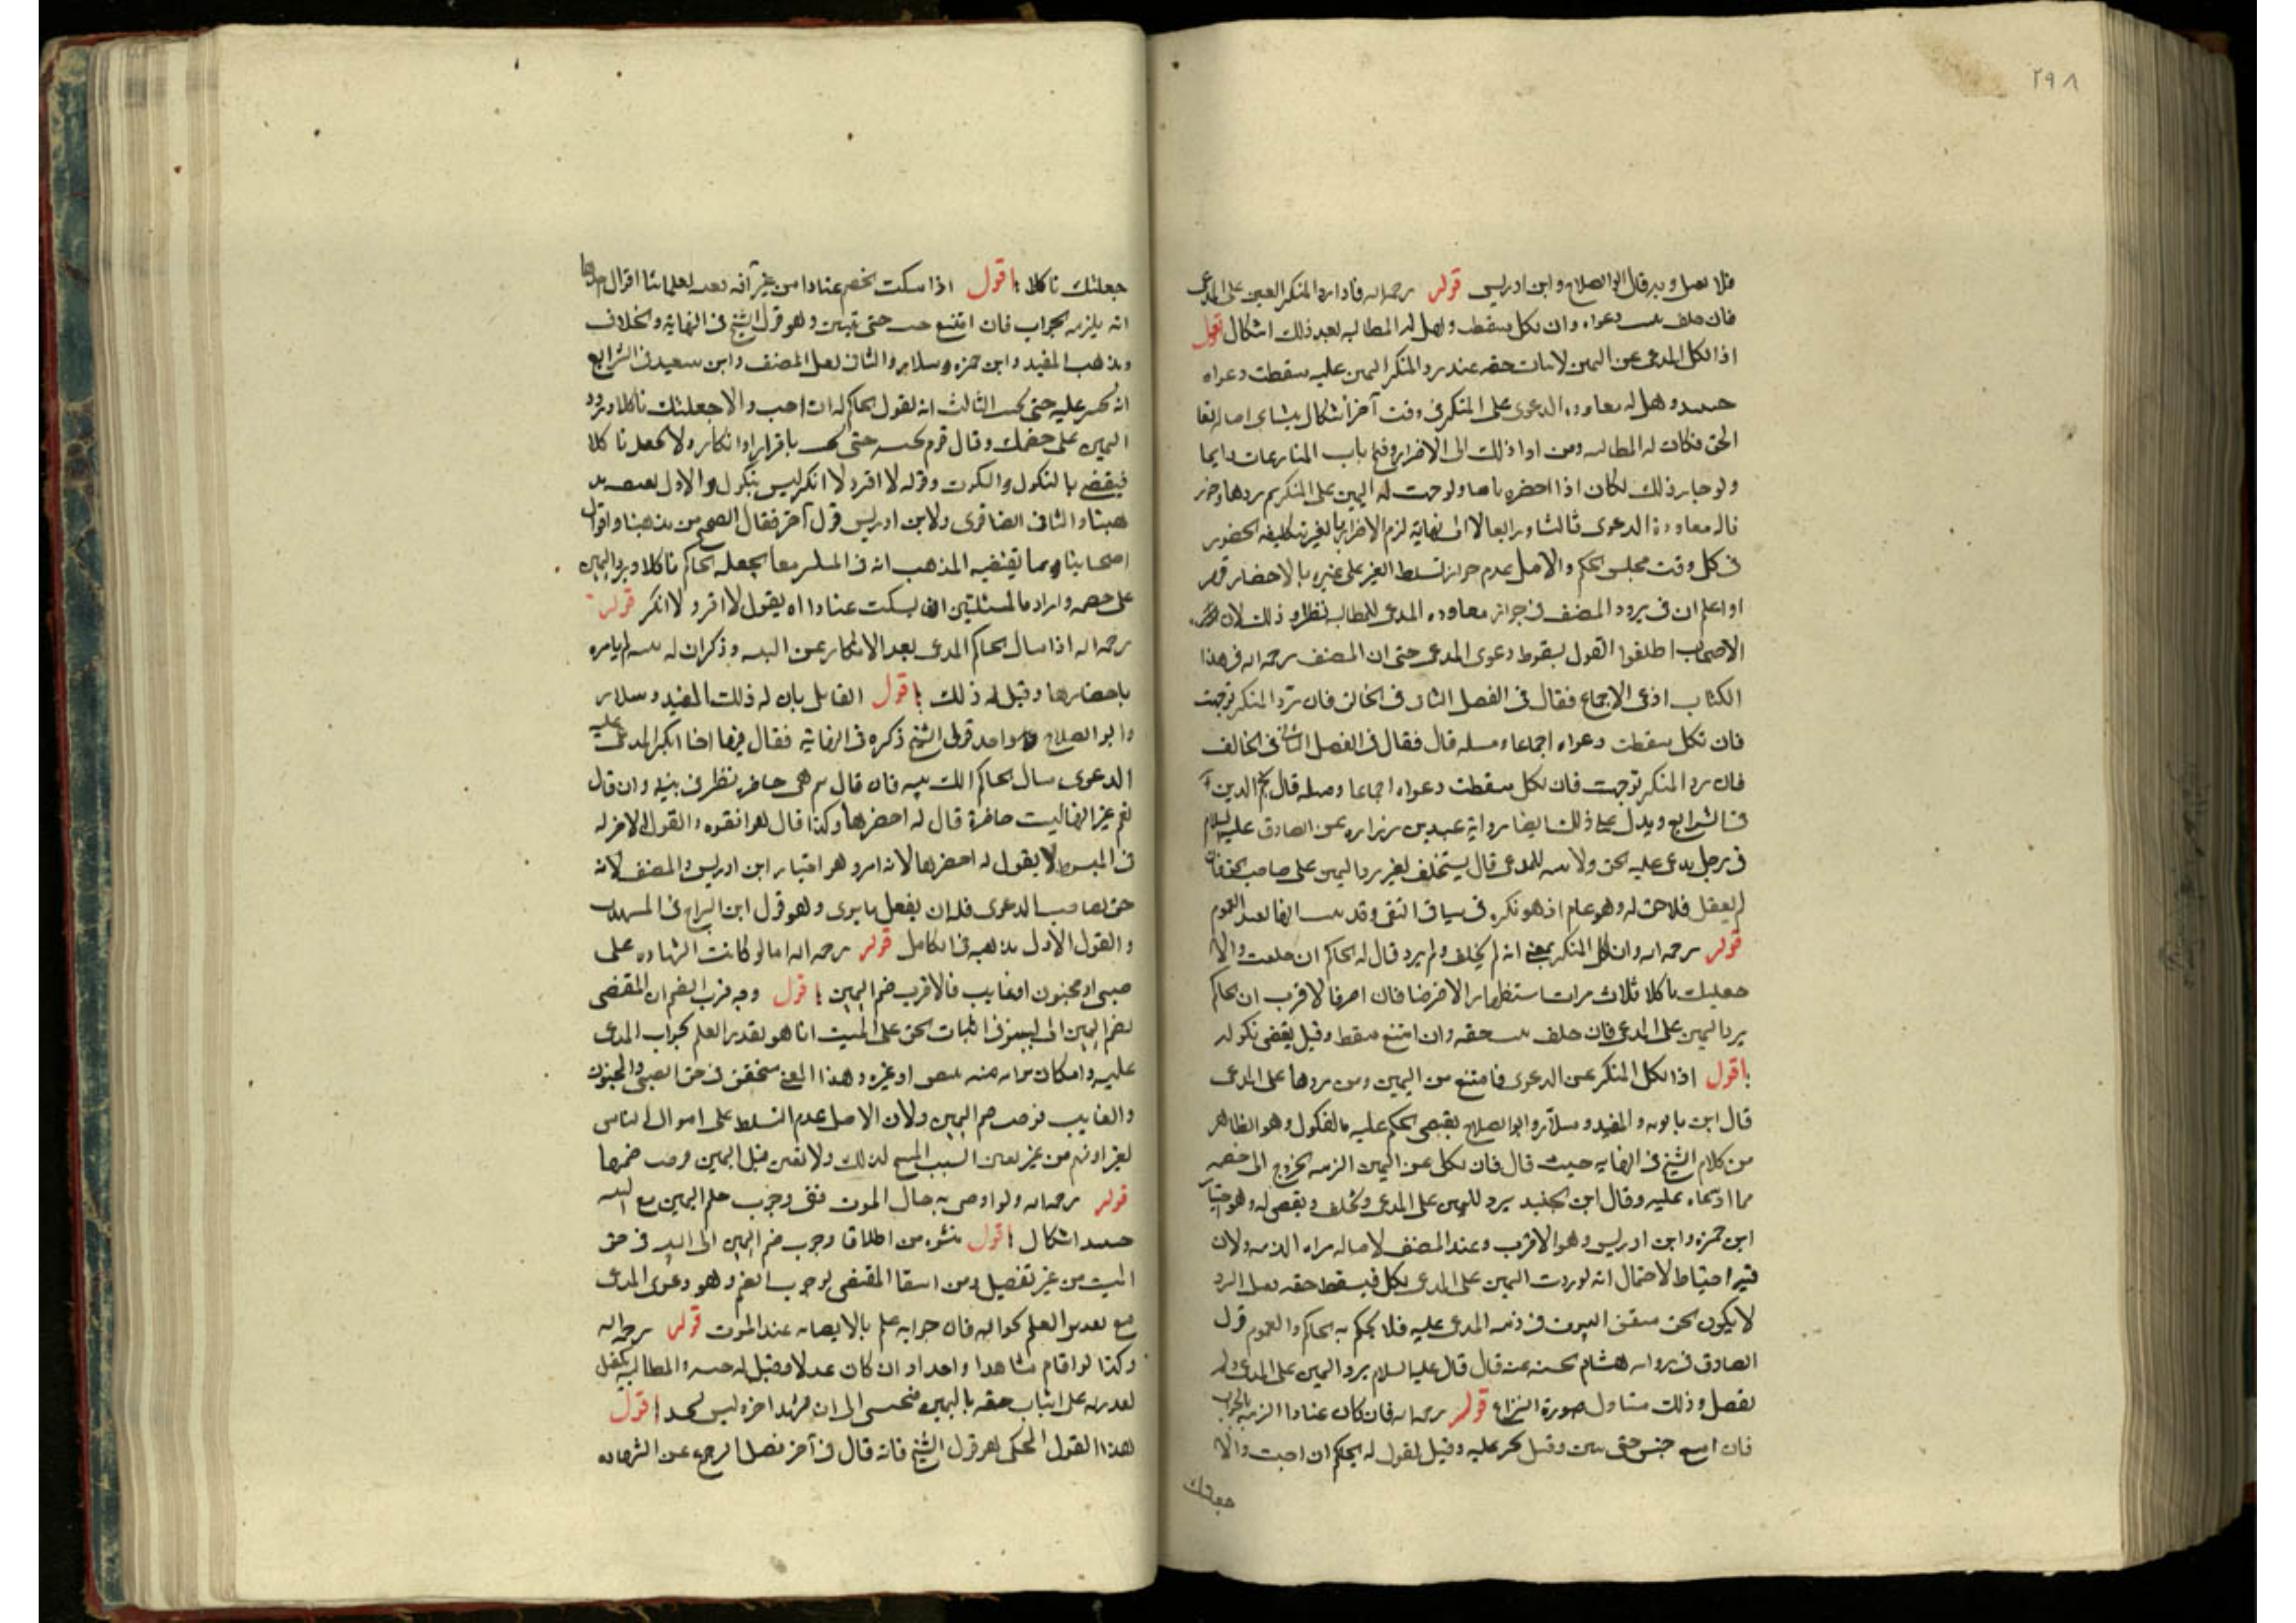 ٢٩٨
فلا وبه قال ابو الصلاح وابن ادريس قوله رحمه الله فاذا رد المنكر اليمين على المدعى
فان حلف دعواه وان نكل سقطت وهل له المطالبة بعد ذلك اشكال اقول
اذا نكل المدعى عن اليمين لاثبات حقه عند رد المنكر اليمين عليه سقطت دعواه
وهل له معاودة الدعوى على المنكر فى وقت آخر اشكال ينشا من اصالة بقا
الحق فكان له المطالبة ومن ذلك الى الاضرار وفتح باب المنازعات دايما
ولو جاز ذلك لكان اذا احضره ولوجهت له اليمين على المنكر ثم ردها وجوز
له معاودة الدعوى ثالثا ورابعا لا الى نهاية لزم الاضرار بالغير بتكليفه الحضور
فى كل وقت مجلس الحكم والاصل عدم جواز تسلط الغير على غيره بالاحضار
اواعلم ان فى تردد المصنف فى جواز معاودة المدعى للمطالبة نظر وذلك لان
الاصحاب اطلقوا القول بسقوط دعوى المدعى حتى ان المصنف رحمه الله فى هذا
الكتاب ادعى الاجماع فقال فى الفصل الثانى فى الحالف فان رد المنكر توجهت
فان نكل سقطت دعواه اجماعا ومثله قال فقال فى الفصل الثانى فى الحالف
فان رد المنكر توجهت فان نكل سقطت دعواه اجماعا ومثله قال نجم الدين
فى الشرايع ويدل على ذلك ايضا رواية عبيد بن زرارة عن الصادق عليه السلام
فى رجل يدعى عليه الحق ولا بينة للمدعى قال يستحلف او يرد اليمين على صاحب الحق فان
لم يفعل فلا حق له وهو عام اذ هو نكرة فى سياق النفى وقد العموم
قوله رحمه الله وان نكل المنكر بمعنى انه لم يحلف ولم يرد قال له الحاكم ان حلفت والا
جعلتك ناكلا ثلاث مرات استظهارا لا فرضا فان اصر فالاقرب ان الحاكم
يرد اليمين على المدعى فان حلف حقه وان امتنع سقط وقيل يقضى بنكوله
اقول اذا نكل المنكر عن الدعوى فامتنع من اليمين ومن ردها على المدعى
قال ابن بابويه والمفيد وسلار وابو الصلاح يقضى الحكم عليه بالنكول وهو الظاهر
من كلام الشيخ فى النهاية حيث قال فان نكل عن اليمين الزمه الخروج الى خصمه
مما ادعاه عليه وقال ابن الجنيد يرد اليمين على المدعى ويحلف ويقضى له وهو اختيار
ابن حمزه وابن ادريس وهو الاقرب وعند المصنف لاصالة براه الذمه ولان
فيه احتياط لاحتمال انه لو ردت اليمين على المدعى نكل فيسقط حقه قبل الرد
لا يكون الحق متيقن الثبوت فى ذمه المدعى عليه فلا يحكم به الحاكم والعموم قول
الصادق فى رواية هشام الحسنة عنه قال قال عليه السلام يرد اليمين على المدعى ولم
يفصل وذلك متناول صورة النزاع قوله رحمه الله فان كان عنادا الزمه بالجواب
فان امتنع حبس حتى يبين وقيل يجبر عليه وقيل يقول له الحاكم ان اجبت والا
جعلتك
جعلتك ناكلا اقول اذا سكت الخصم عنادا من غير آفة لعلمائنا اقوال
انه يلزمه الجواب فان امتنع حبس حتى يبين وهو قول الشيخ فى النهاية والخلاف
ومذهب المفيد وابن حمزه وسلار والثانى نقل المصنف وابن سعيد فى الشرايع
انه يجبر عليه حتى يجيب الثالث انه يقول الحاكم له ان اجبت والا جعلتك ناكلا ورددت
اليمين على خصمك وقال قوم يحبسه حتى يجيب باقرار او انكار ولا يجعل ناكلا
فيقضى بالنكول والسكوت وقوله لا اقر ولا انكر ليس بنكول والاول
والثانى ايضا قوى ولابن ادريس قول آخر فقال الصحيح من مذهبنا واقوال
اصحابنا وما يقتضيه المذهب ان فى المسئلتين معا يجعله الحاكم ناكلا ويرد اليمين
على خصمه واراد بالمسئلتين ان يسكت عنادا او يقول لا اقر ولا انكر قوله
رحمه الله اذا سال الحاكم المدعى بعد الانكار عن البينة وذكر ان له بينه لم يامره
باحضارها وقيل له ذلك اقول القايل بان له ذلك المفيد وسلار
وابو الصلاح وهو احد قولى الشيخ ذكره فى النهاية فقال فيها اذا انكر المدعى عليه
الدعوى سال الحاكم الك بينه فان قال نعم هى حاضره نظر فى بينته وان قال
نعم غير انها ليست حاضرة قال له احضرها وكذا قال والقول الاخر له
فى المبسوط لا يقول له احضرها لانه امر وهو اختيار ابن ادريس والمصنف لانه
حق لصاحب الدعوى فله ان يفعل ما يرى وهو قول ابن البراج فى المهذب
والقول الاول مذهبه فى الكامل قوله رحمه الله اما لو كانت الشهاده على
صبى او مجنون او غايب فالاقرب ضم اليمين اقول وجه قرب الضم ان المقتضى
لضم اليمين الى البينة فى اثبات الحق على الميت انما هو لعدم العلم بجواب المدعى
عليه وامكان براءته منه بقبض او غيره وهذا المعنى متحقق فى حق الصبى والمجنون
والغايب فوجب ضم اليمين ولان الاصل عدم التسلط على اموال الناس
بغير اذنهم من غير يقين السبب المبيح لذلك ولا يقين قبل اليمين فوجب ضمها
قوله رحمه الله ولو اوصى به حال الموت ففى وجوب ضم اليمين مع البينة
حينئذ اشكال اقول ينشا من اطلاق وجوب ضم اليمين الى البينة فى حق
الميت من غير تفصيل ومن انتفا المقتضى لوجوب الضم وهو دعوى المدعى
مع العلم بجوابه فان جوابه علم بالايصاء به عند الموت قوله رحمه الله
وكذا لو اقام شاهدا واحدا وان كان عدلا وقيل له حبسه والمطالبة بكفيل
لقدرته على اثبات حقه باليمين فيحبس الى ان يشهد اخر وليس بجيد اقول
هذا القول المحكى هو قول الشيخ فانه قال فى آخر فصل الرجوع عن الشهاده